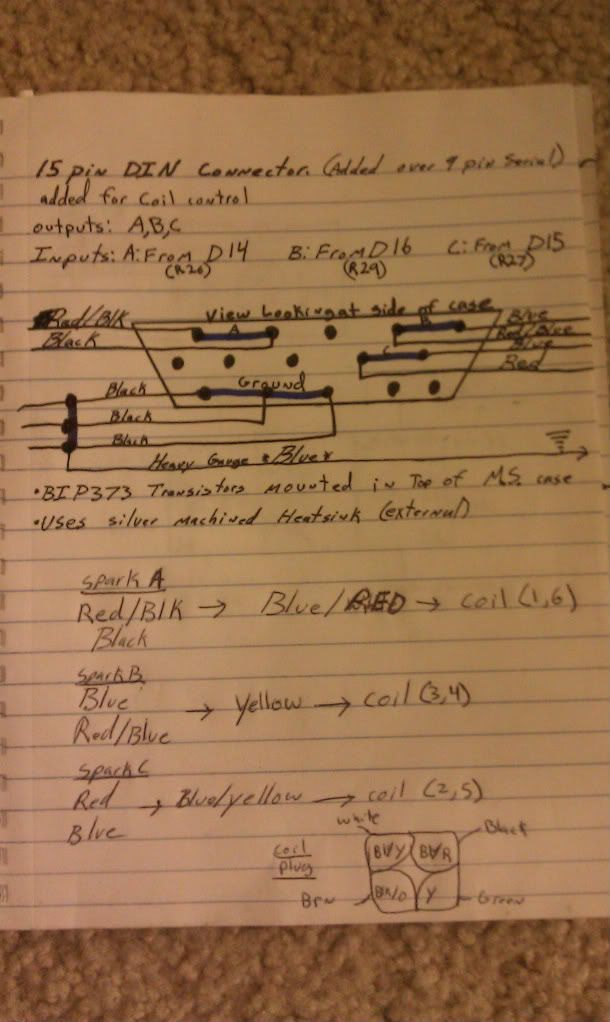 15 pin DIN Connector. (Added over 9 pin Serial)
added for Coil control
outputs: A,B,C
Inputs: A: From D14 B: From D16 C: From D15
(R26) (R29) (R27)
View Looking at side of case
Red/Blk A B Blue
Black Red/Blue
C Blue
Red
Black Ground
Black
Black
Heavy Gauge *Blue*
•BIP373 Transistors mounted in Top of M.S. case
•Uses silver machined Heatsink (external)
Spark A
Red/Blk → Blue/RED → coil (1,6)
Black
Spark B
Blue → Yellow → coil (3,4)
Red/Blue
Spark C
Red → Blue/yellow → coil (2,5)
Blue
white Black
coil plug
Y
Brn Green